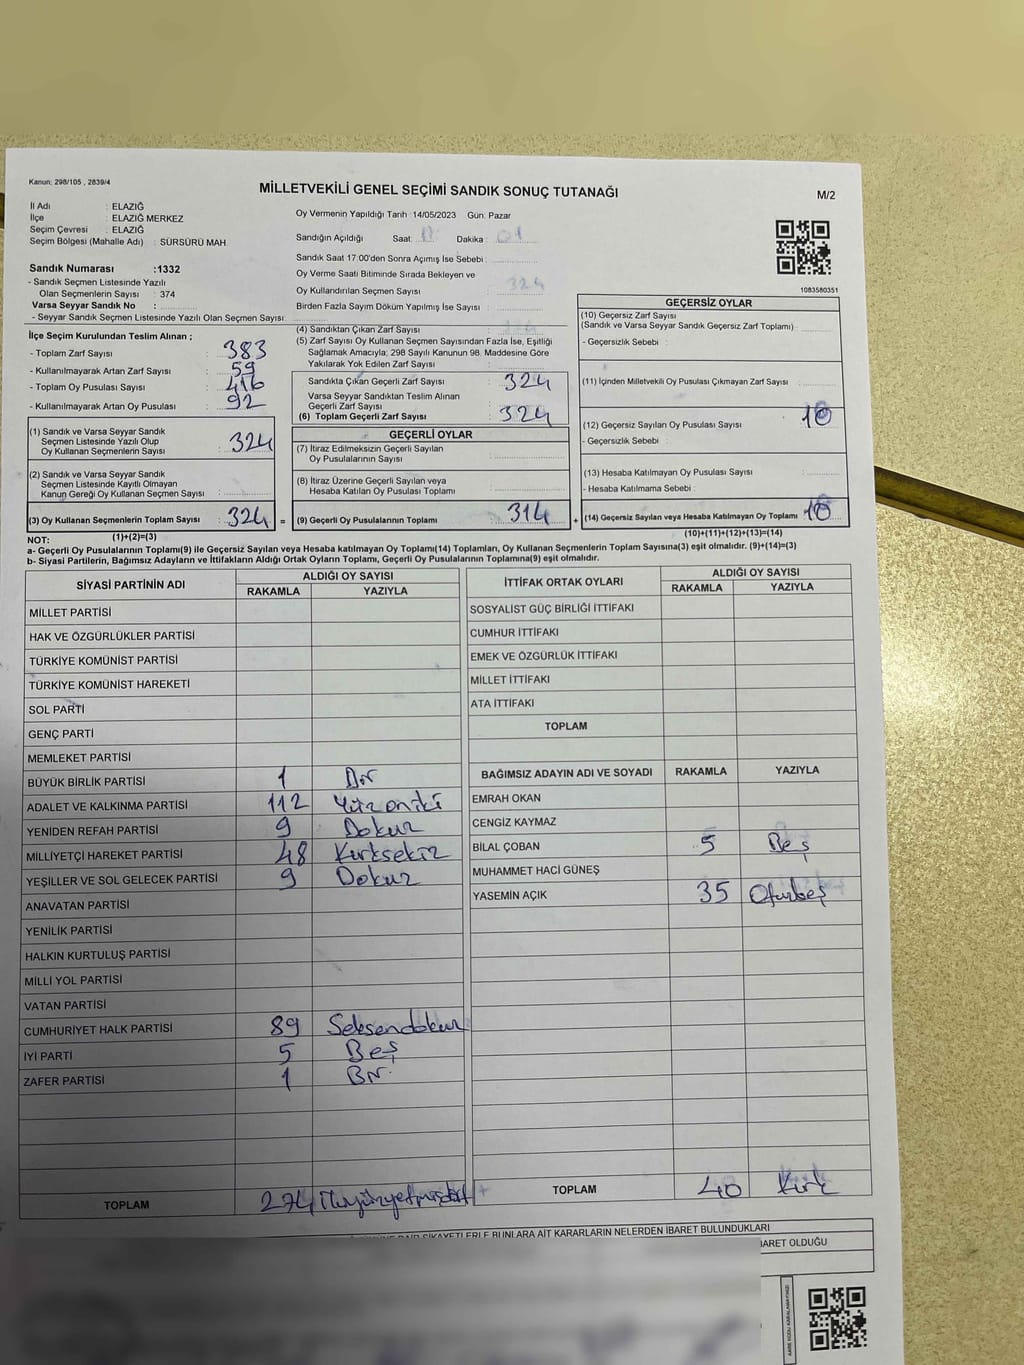 Kanun: 298/105 , 2839/4
MİLLETVEKİLİ GENEL SEÇİMİ SANDIK SONUÇ TUTANAĞI
M/2
İl Adı : ELAZIĞ
İlçe : ELAZIĞ MERKEZ
Seçim Çevresi : ELAZIĞ
Seçim Bölgesi (Mahalle Adı) : SÜRSÜRÜ MAH.
Sandık Numarası :1332
- Sandık Seçmen Listesinde Yazılı
Olan Seçmenlerin Sayısı : 374
Varsa Seyyar Sandık No :
- Seyyar Sandık Seçmen Listesinde Yazılı Olan Seçmen Sayısı:
Oy Vermenin Yapıldığı Tarih :14/05/2023 Gün: Pazar
Sandığın Açıldığı Saat: 17 Dakika : 01
Sandık Saat 17:00'den Sonra Açımış İse Sebebi :
Oy Verme Saati Bitiminde Sırada Bekleyen ve
Oy Kullandırılan Seçmen Sayısı : 324
Birden Fazla Sayım Döküm Yapılmış İse Sayısı :
1083580351
İlçe Seçim Kurulundan Teslim Alınan ;
- Toplam Zarf Sayısı : 383
- Kullanılmayarak Artan Zarf Sayısı : 59
- Toplam Oy Pusulası Sayısı : 416
- Kullanılmayarak Artan Oy Pusulası : 92
(1) Sandık ve Varsa Seyyar Sandık
Seçmen Listesinde Yazılı Olup
Oy Kullanan Seçmenlerin Sayısı : 324
(2) Sandık ve Varsa Seyyar Sandık
Seçmen Listesinde Kayıtlı Olmayan
Kanun Gereği Oy Kullanan Seçmen Sayısı :
(3) Oy Kullanan Seçmenlerin Toplam Sayısı : 324 =
(1)+(2)=(3)
(4) Sandıktan Çıkan Zarf Sayısı : 324
(5) Zarf Sayısı Oy Kullanan Seçmen Sayısından Fazla İse, Eşitliği
Sağlamak Amacıyla; 298 Sayılı Kanunun 98. Maddesine Göre
Yakılarak Yok Edilen Zarf Sayısı :
Sandıkta Çıkan Geçerli Zarf Sayısı : 324
Varsa Seyyar Sandıktan Teslim Alınan
Geçerli Zarf Sayısı :
(6) Toplam Geçerli Zarf Sayısı : 324
GEÇERLİ OYLAR
(7) İtiraz Edilmeksizin Geçerli Sayılan
Oy Pusulalarının Sayısı :
(8) İtiraz Üzerine Geçerli Sayılan veya
Hesaba Katılan Oy Pusulası Toplamı :
(9) Geçerli Oy Pusulalarının Toplamı : 314 +
GEÇERSİZ OYLAR
(10) Geçersiz Zarf Sayısı
(Sandık ve Varsa Seyyar Sandık Geçersiz Zarf Toplamı) :
- Geçersizlik Sebebi :
(11) İçinden Milletvekili Oy Pusulası Çıkmayan Zarf Sayısı :
(12) Geçersiz Sayılan Oy Pusulası Sayısı : 10
- Geçersizlik Sebebi :
(13) Hesaba Katılmayan Oy Pusulası Sayısı :
- Hesaba Katılmama Sebebi :
(14) Geçersiz Sayılan veya Hesaba Katılmayan Oy Toplamı : 10
(10)+(11)+(12)+(13)=(14)
NOT:
a- Geçerli Oy Pusulalarının Toplamı(9) ile Geçersiz Sayılan veya Hesaba katılmayan Oy Toplamı(14) Toplamları, Oy Kullanan Seçmenlerin Toplam Sayısına(3) eşit olmalıdır. (9)+(14)=(3)
b- Siyasi Partilerin, Bağımsız Adayların ve İttifakların Aldığı Ortak Oyların Toplamı, Geçerli Oy Pusulalarının Toplamına(9) eşit olmalıdır.
SİYASİ PARTİNİN ADI ALDIĞI OY SAYISI
RAKAMLA YAZIYLA
MİLLET PARTİSİ
HAK VE ÖZGÜRLÜKLER PARTİSİ
TÜRKİYE KOMÜNİST PARTİSİ
TÜRKİYE KOMÜNİST HAREKETİ
SOL PARTİ
GENÇ PARTİ
MEMLEKET PARTİSİ
BÜYÜK BİRLİK PARTİSİ 1 Bir
ADALET VE KALKINMA PARTİSİ 112 Yüzoniki
YENİDEN REFAH PARTİSİ 9 Dokuz
MİLLİYETÇİ HAREKET PARTİSİ 48 Kırksekiz
YEŞİLLER VE SOL GELECEK PARTİSİ 9 Dokuz
ANAVATAN PARTİSİ
YENİLİK PARTİSİ
HALKIN KURTULUŞ PARTİSİ
MİLLİ YOL PARTİSİ
VATAN PARTİSİ
CUMHURİYET HALK PARTİSİ 89 Seksendokuz
İYİ PARTİ 5 Beş
ZAFER PARTİSİ 1 Bir
TOPLAM 274 İkiyüzyetmişdört
İTTİFAK ORTAK OYLARI ALDIĞI OY SAYISI
RAKAMLA YAZIYLA
SOSYALİST GÜÇ BİRLİĞİ İTTİFAKI
CUMHUR İTTİFAKI
EMEK VE ÖZGÜRLÜK İTTİFAKI
MİLLET İTTİFAKI
ATA İTTİFAKI
TOPLAM
BAĞIMSIZ ADAYIN ADI VE SOYADI RAKAMLA YAZIYLA
EMRAH OKAN
CENGİZ KAYMAZ
BİLAL ÇOBAN 5 Beş
MUHAMMET HACİ GÜNEŞ
YASEMİN AÇIK 35 Otuzbeş
TOPLAM 40 Kırk
ŞİKAYETLERLE BUNLARA AİT KARARLARIN NELERDEN İBARET BULUNDUKLARI
BARET OLDUĞU